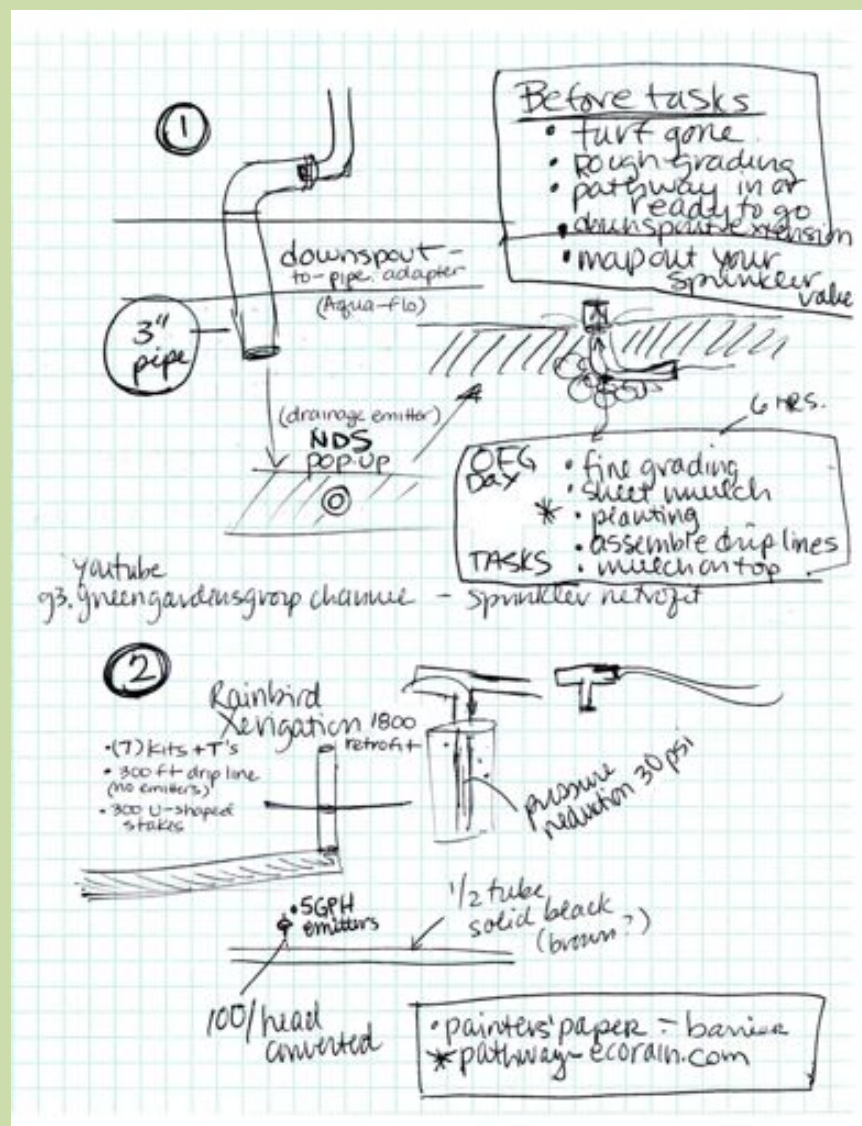 1
Before tasks
• turf gone
• rough grading
• pathway in or
ready to go
• downspout extension
• map out your
sprinkler
valve
downspout -
to-pipe adapter
(Aqua-flo)
3" pipe
(drainage emitter)
NDS
POP-UP
6 HRS.
OFG
DAY
TASKS
• fine grading
• sheet mulch
* • planting
• assemble drip lines
• mulch on top
youtube
g3.greengardensgroup channel - sprinkler retrofit
2
Rainbird
Xerigation 1800
retrofit
• (7) kits + T's
• 300 ft drip line
(no emitters)
• 300 U-shaped
stakes
pressure
reduction 30 psi
• 5GPH
emitters
1/2 tube
solid black
(brown?)
100/head
converted
• painters' paper - barrier
* pathway - ecorain.com